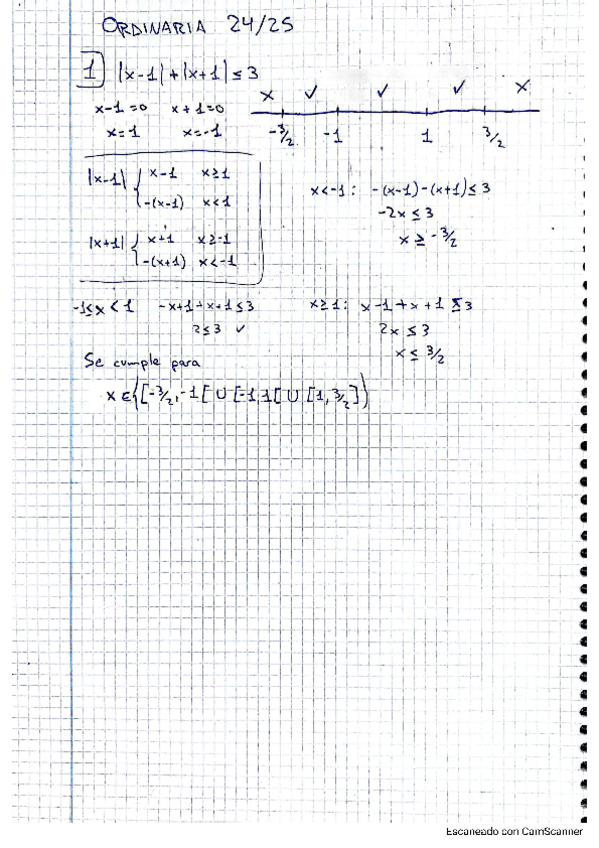 ORDINARIA 24/25
1 |x-1|+|x+1| ≤ 3
x-1=0 x+1=0
x=1 x=-1
x ✓ ✓ ✓ x
-3/2 -1 1 3/2
|x-1| { x-1 x≥1
-(x-1) x<1
|x+1| { x+1 x≥-1
-(x+1) x<-1
x<-1: -(x-1)-(x+1) ≤ 3
-2x ≤ 3
x ≥ -3/2
-1≤x<1 -x+1+x+1 ≤ 3
2 ≤ 3 ✓
x≥1: x-1+x+1 ≤ 3
2x ≤ 3
x ≤ 3/2
Se cumple para
x ∈ {[-3/2,-1[ ∪ [-1,1[ ∪ [1,3/2]}
Escaneado con CamScanner